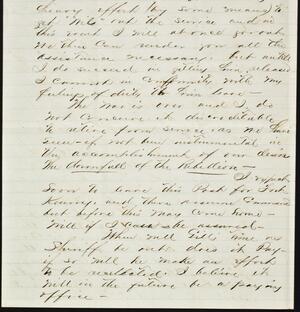 every effort by some means to
get "W.C." out the service and in
this event I will at once go out.
He then can render you all the
assistance necessary but until
I do succeed in getting him released
I cannot in conformity with my
feelings of duty to him leave—
The War is over and I do
not conceive it discreditable
to retire from service as we have
seen if not been instrumental in
the accomplishment of our desire
the downfall of the Rebellion—
I expect
soon to leave this Post for Fort
and then assume Command
but before this may come home—
Will if I can be assured—
When will time as
Sheriff be out; does it pay—
if so will he make an effort
to be reelected. I believe it
will in the future be a paying
office—